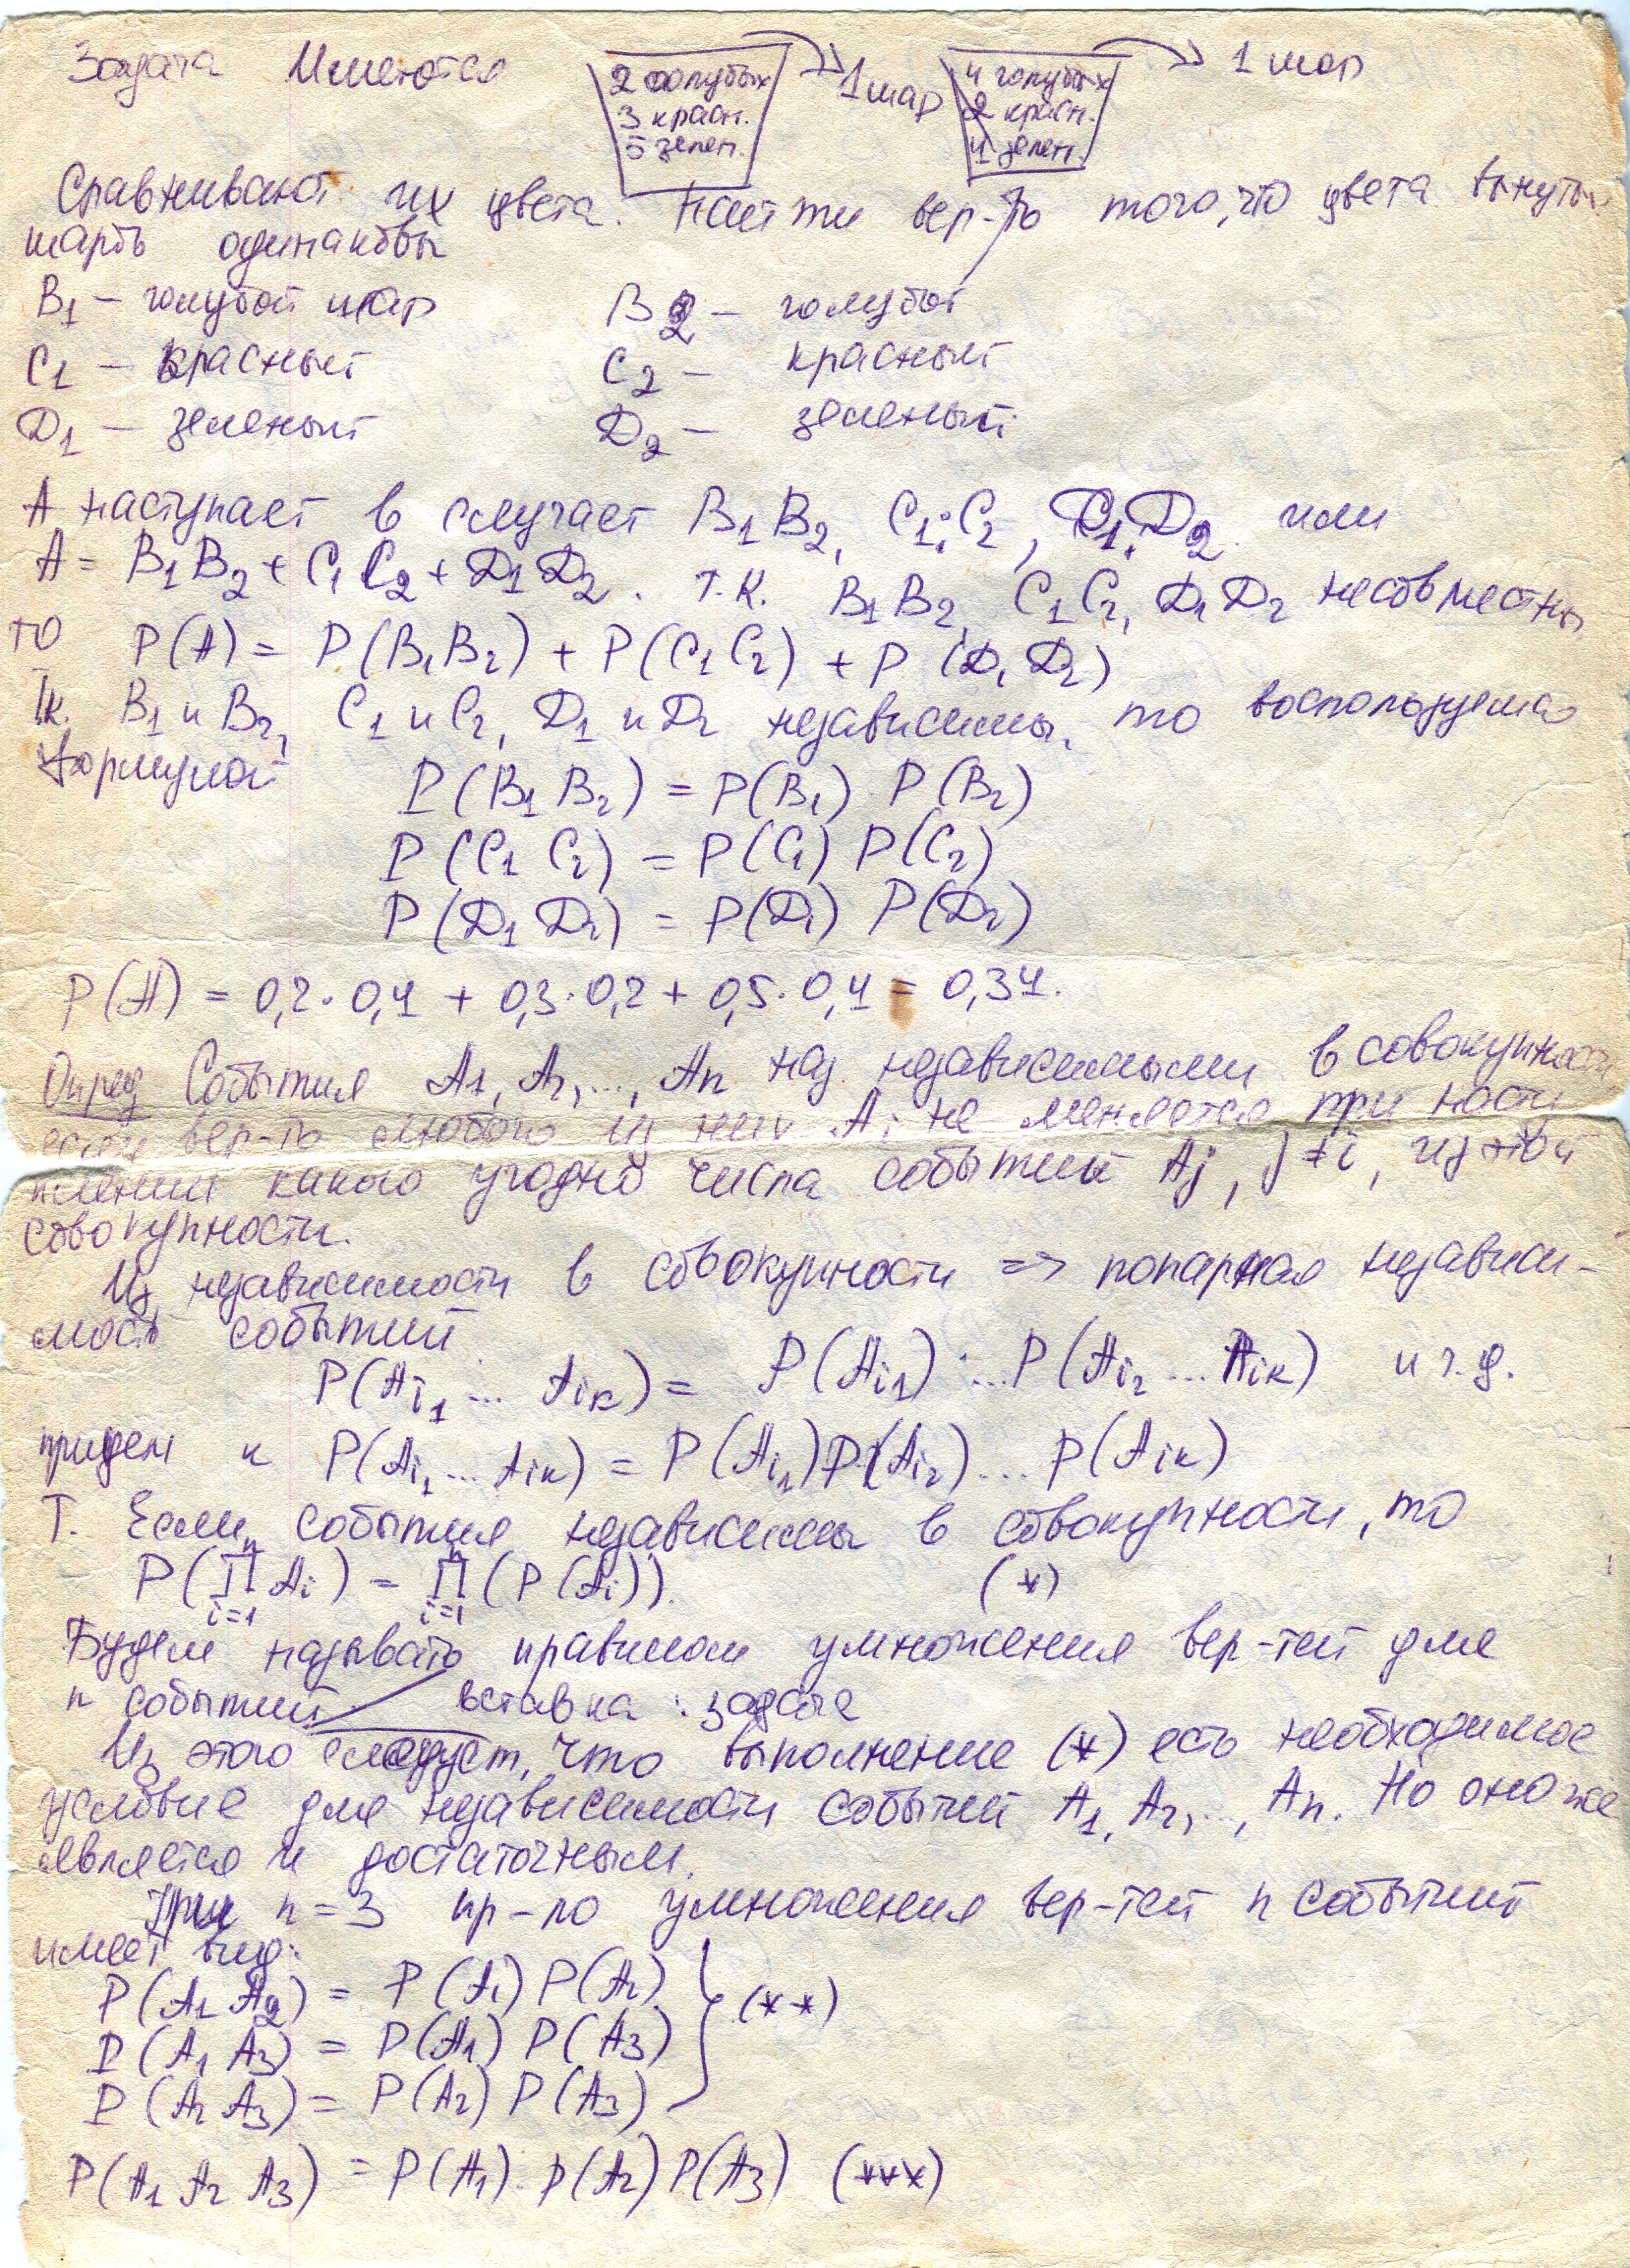 Задача Имеются
2 голубых
3 красн.
5 зелен.
1 шар
4 голубых
2 красн.
4 зелен.
1 шар
Сравнивают их цвета. Найти вер-ть того, что цвета вынутых
шаров одинаковы
B₁ – голубой шар B₂ – голубой
C₁ – красный C₂ – красный
D₁ – зеленый D₂ – зеленый
A наступает в случает B₁B₂, C₁C₂, D₁D₂ или
A = B₁B₂ + C₁C₂ + D₁D₂. Т.к. B₁B₂, C₁C₂, D₁D₂ несовместны,
то P(A) = P(B₁B₂) + P(C₁C₂) + P(D₁D₂)
Тк. B₁ и B₂, C₁ и C₂, D₁ и D₂ независимы, то воспользуемся
формулой P(B₁B₂) = P(B₁) P(B₂)
P(C₁C₂) = P(C₁) P(C₂)
P(D₁D₂) = P(D₁) P(D₂)
P(A) = 0,2·0,4 + 0,3·0,2 + 0,5·0,4 = 0,34.
Опред События A₁, A₂, ..., Aₙ наз. независимыми в совокупности
если вер-ть любого из них Aᵢ не меняется при насту
плении какого угодно числа событий Aⱼ, j ≠ i, из этой
совокупности.
Из независимости в совокупности => попарная независи-
мость событий
P(Aᵢ₁ ... Aᵢₖ) = P(Aᵢ₁) ... P(Aᵢ₂ ... Aᵢₖ) и т.д.
придем к P(Aᵢ₁ ... Aᵢₖ) = P(Aᵢ₁)P(Aᵢ₂)... P(Aᵢₖ)
Т. Если события независимы в совокупности, то
P(∏ⁿᵢ₌₁ Aᵢ) = ∏ⁿᵢ₌₁ (P(Aᵢ)). (*)
Будем называть правилом умножения вер-тей для
n событий вставка: задача
Из этого следует, что выполнение (*) есть необходимое
условие для независимости событий A₁, A₂, ..., Aₙ. Но оно же
является и достаточным.
При n = 3 пр-ло умножения вер-тей n событий
имеет вид:
P(A₁A₂) = P(A₁) P(A₂)
P(A₁A₃) = P(A₁) P(A₃) (**)
P(A₂A₃) = P(A₂) P(A₃)
P(A₁A₂A₃) = P(A₁)·P(A₂)P(A₃) (***)